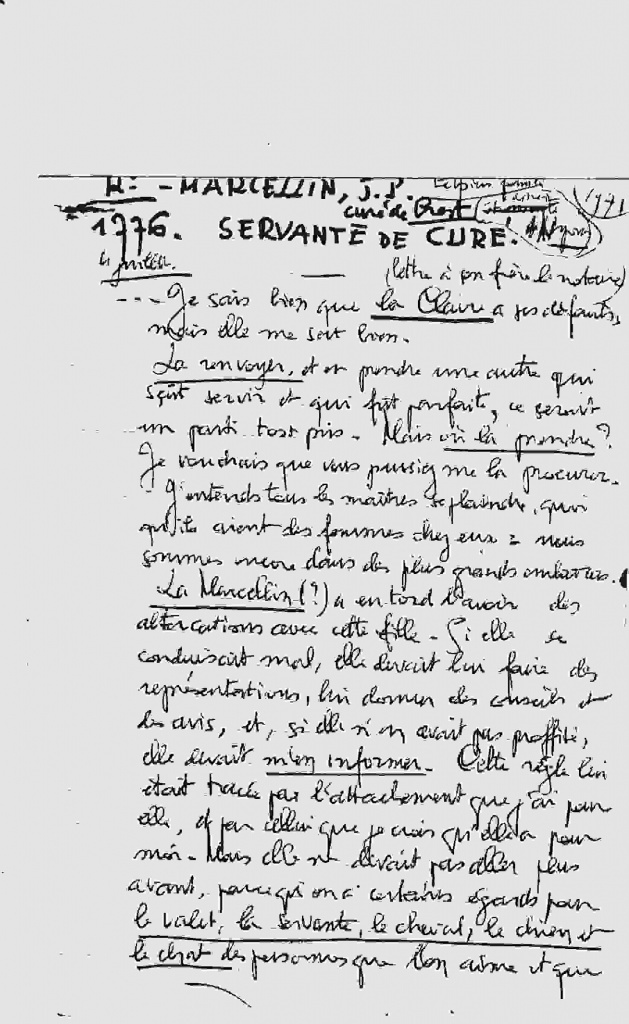 H: - MARCELLIN, J.P.
curé de Prost
1771
1776. SERVANTE DE CURE.
4 juillet.
(lettre à son frère le notaire)
--- Je sais bien que la Claire a ses défauts,
mais elle me sert bien.
La renvoyer, et en prendre une autre qui
sçût servir et qui fût parfaite, ce serait
un parti tost pris. Mais où la prendre?
Je voudrais que vous puissiez me la procurer.
- J'entends tous les maîtres se plaindre, quoi
qu'ils aient des femmes chez eux: nous
sommes encore dans des plus grands embarras.
La Marcellin (?) a eu tord d'avoir des
altercations avec cette fille. Si elle se
conduisait mal, elle devait lui faire des
représentations, lui donner des conseils et
des avis, et, si elle n'en avait pas proffité,
elle devait m'en informer. Cette règle lui
était tracée par l'attachement que j'ai pour
elle, et par celui que je crois qu'elle a pour
moi. Mais elle ne devait pas aller plus
avant, parce qu'on a certains égards pour
le valet, la servante, le cheval, le chien et
le chat des personnes que l'on aime et que